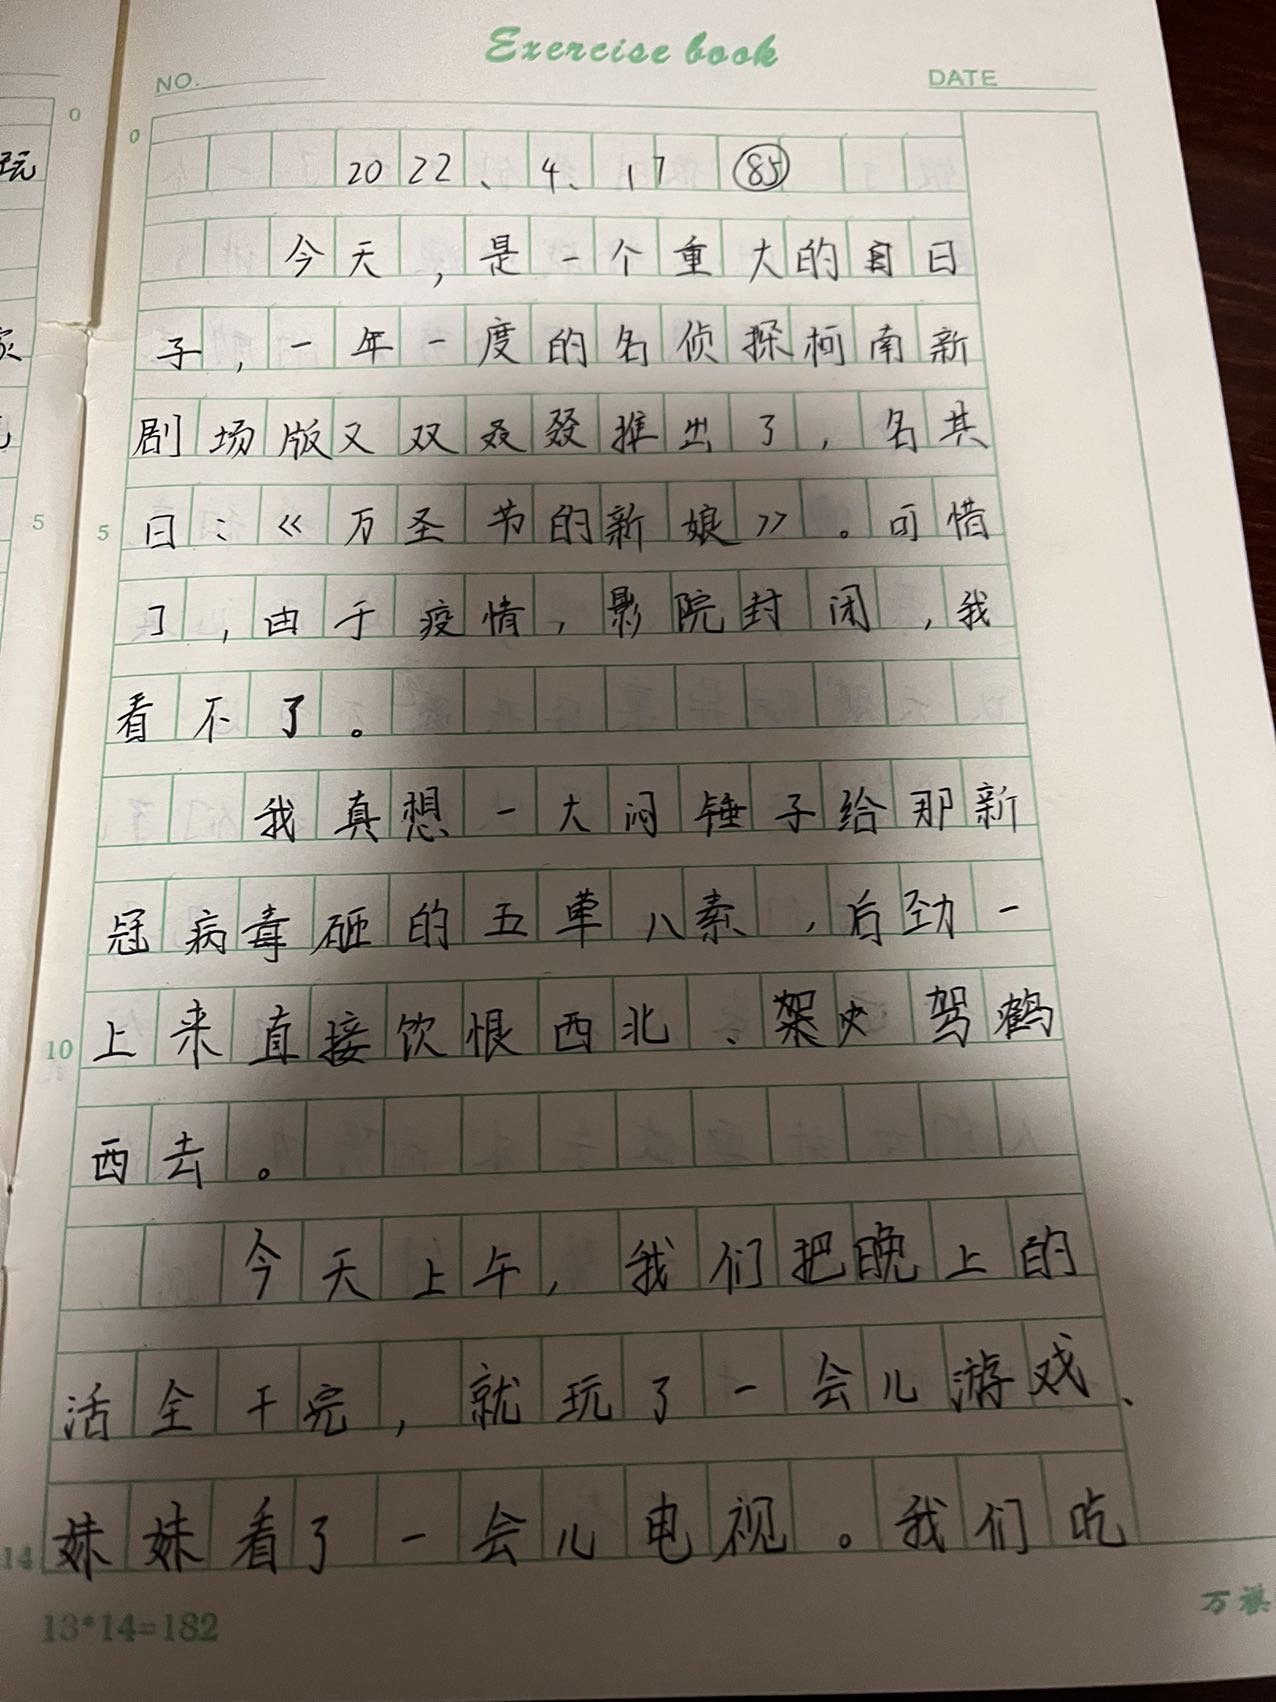 Exercise book
NO.
DATE
2022、4、17 85
今天，是一个重大的日
子，一年一度的名侦探柯南新
剧场版又双叒叕推出了，名共
曰：《万圣节的新娘》。可惜
了，由于疫情，影院封闭，我
看不了。
我真想一大闷锤子给那新
冠病毒砸的五荤八素，后劲一
上来直接饮恨西北、驾鹤
西去。
今天上午，我们把晚上的
活全干完，就玩了一会儿游戏、
妹妹看了一会儿电视。我们吃
0
5
0
5
10
14
13*14=182
万祺
玩
家